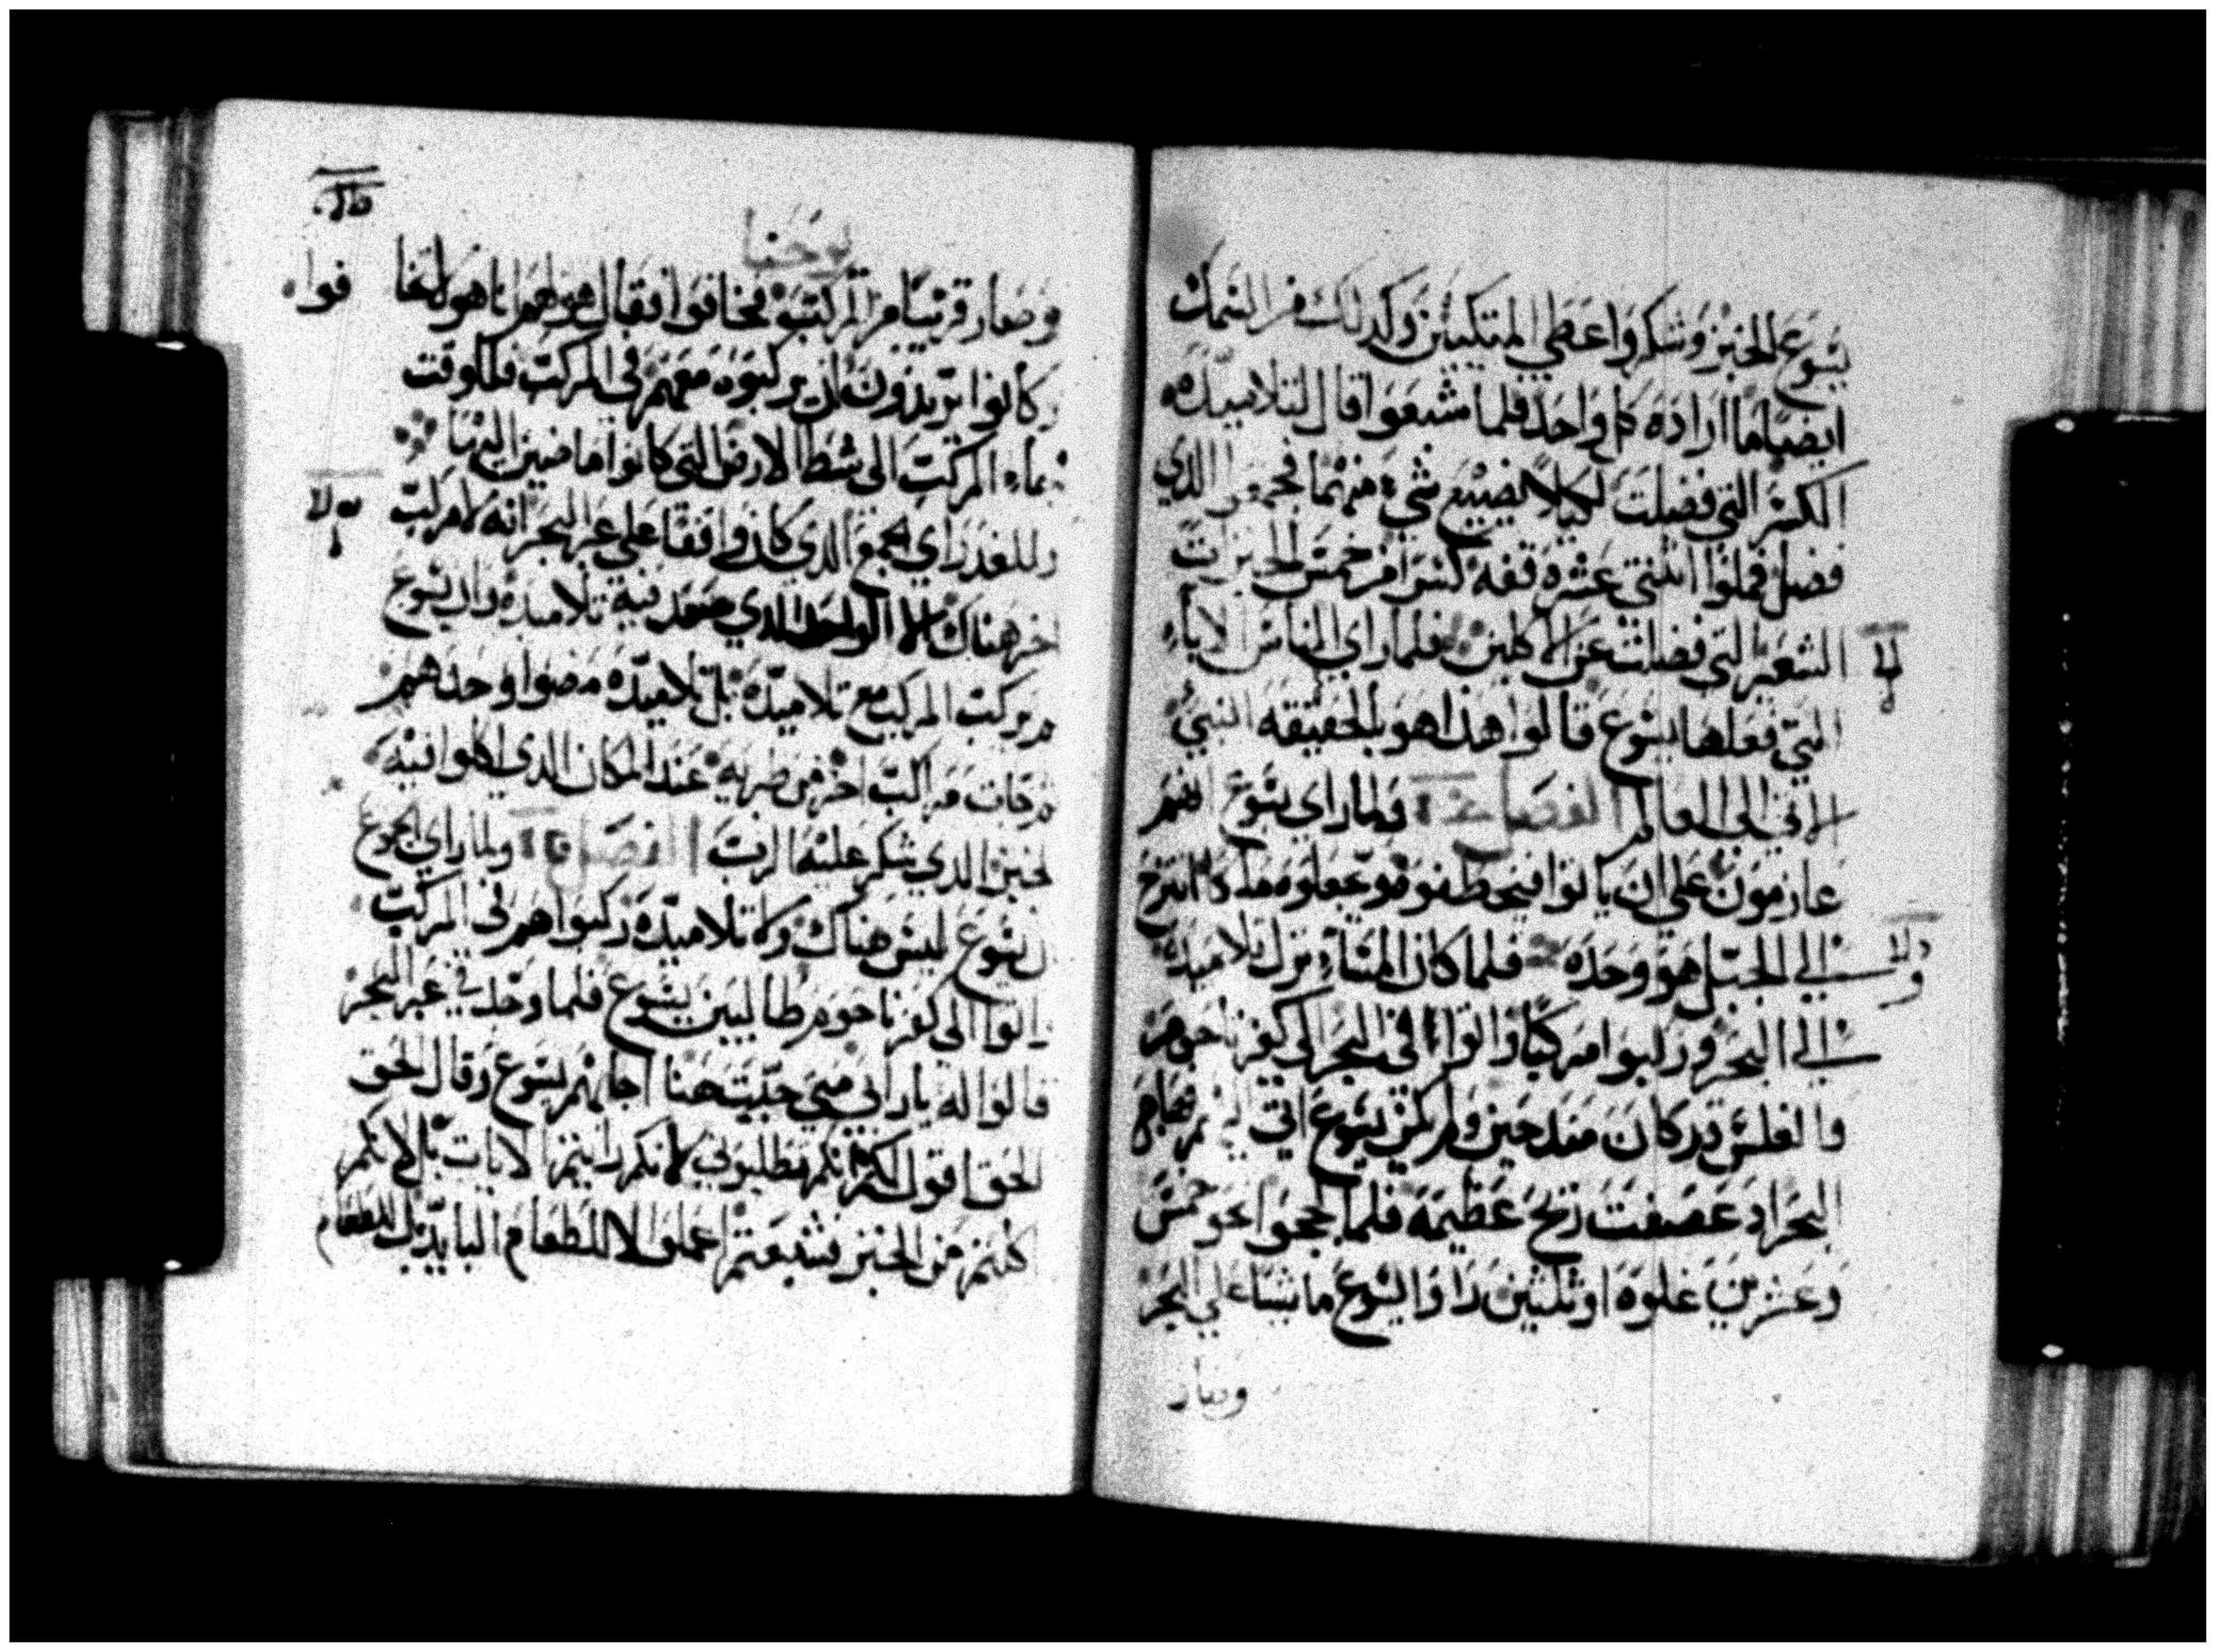 يسوع الخبز وشكر واعطي المتكيين وكدلك من السمك
ايضا ما اراده كل واحد فلما شبعوا قال لتلاميده
الكسر التي فضلت لكيلا يضيع شيء منها فجمعوا الدي
فضل فملوا اثنتي عشره قفه كسرا من خمس الخبزات
الشعير التي فضلت عن الاكلين فلما راي الناس الاياه
التي فعلها يسوع قالوا هذا هو بالحقيقه النبي
الاتي الي العالم الفصل ولما راي يسوع انهم
عازمون علي ان ياتوا فيخطفوه ويجعلوه ملكا انتزح
الي الجبل هو وحده فلما كان المساء نزل تلاميده
الي البحر وركبوا مركبا واتوا في البحر الي كفرناحوم
والغلس قد كان مند حين ولم يكن يسوع اتي اليهم فهاج
البحر اد عصفت ريح عظيمه فلما لججوا نحو خمس
وعشرين غلوه او ثلثين راوا يسوع ماشيا علي البحر
وصار
يوحنا
وصار قريبا من المركب فخافوا فقال هو لهم انا هو لا تخافوا
وكانوا يريدون ان يركبوه معهم في المركب فللوقت
جاء المركب الي شط الارض التي كانوا ماضين اليها
وللغد راي الجمع الدي كان واقفا علي عبر البحر انه لا مركب
اخر هناك الا الواحد الدي صعد فيه تلاميده وان يسوع
لم يركب المركب مع تلاميده بل تلاميده مضوا وحدهم
وجات مراكب اخر من طبريه عند المكان الدي اكلوا فيه
الخبز الدي شكر عليه الرب الفصل ولما راي الجموع
ان يسوع ليس هناك ولا تلاميده ركبوا هم في المركب
واتوا الي كفرناحوم طالبين يسوع فلما وجد في عبر البحر
قالوا له يا رابي متي جيت هنا اجابهم يسوع وقال الحق
الحق اقول لكم انكم تطلبوني لا نكم رايتم الايات بل لانكم
اكلتم من الخبز فشبعتم اعملوا لا للطعام البايد بل للطعام